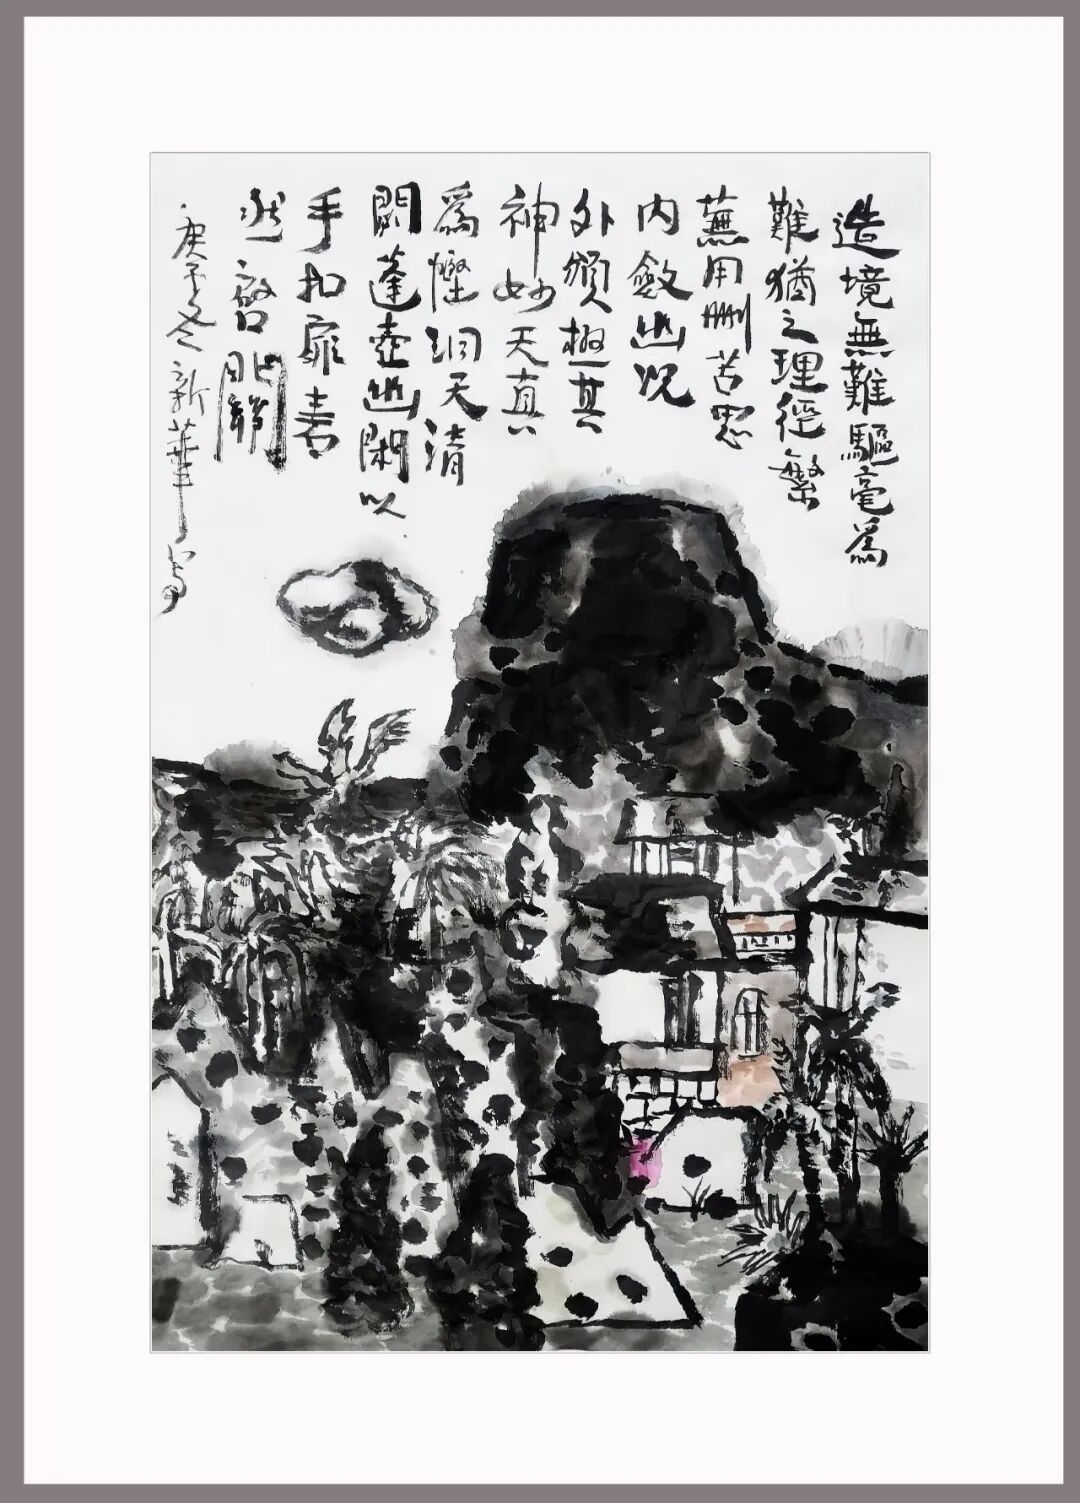 造境無難驅毫爲
難猶之理徑繁
蕪用刪苦思
内斂幽況
外頒極其
神妙天真
爲慳洞天清
閟蓬壺幽閑以
手扣扉砉
然啓關
庚子冬新華寫